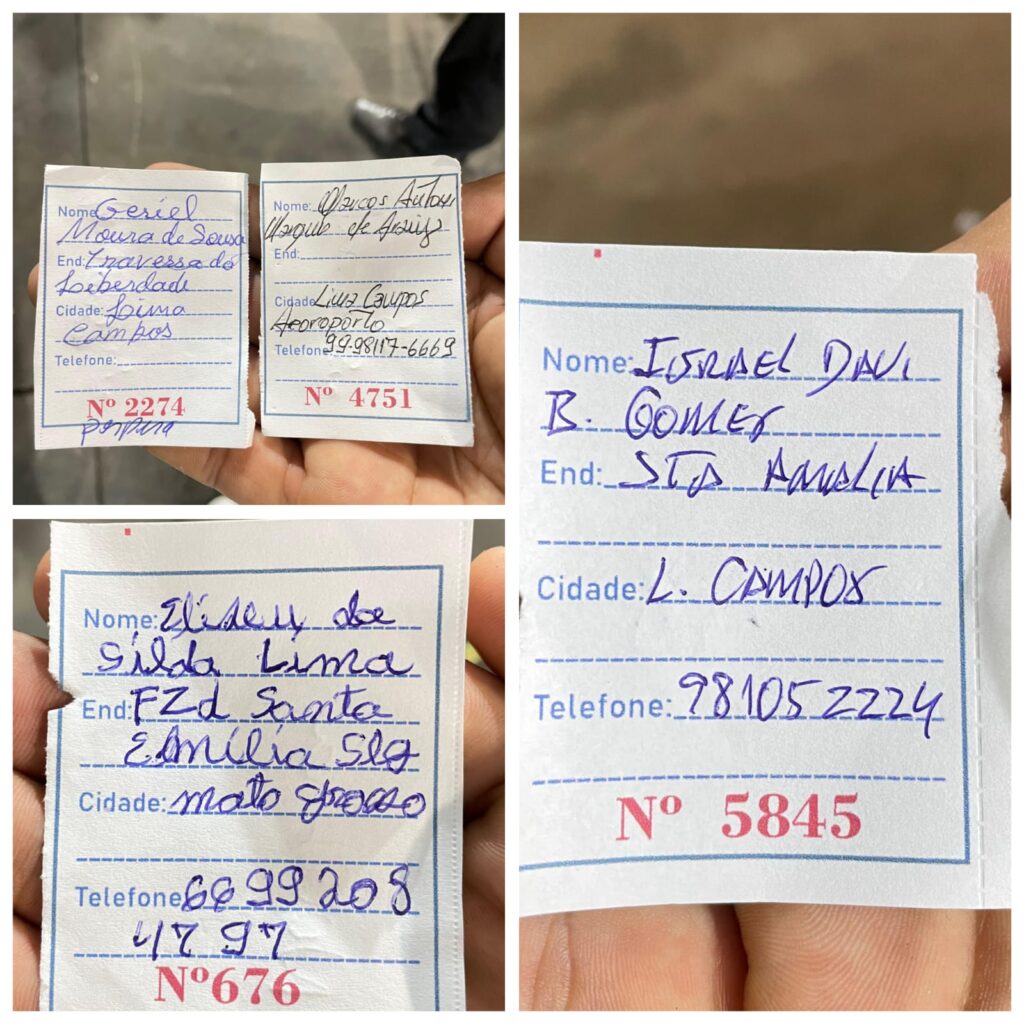 Nome: Geriel
Moura de Sousa
End: Travessa do
Liberdade
Cidade: Lima
Campos
Telefone:
Nº 2274
Nome: Marcos Antoni
Marques de Araujo
End:
Cidade: Lima Campos
Aeoroporto
Telefone 99-98117-6669
Nº 4751
Nome: Eliseu da
Silda Lima
End: FZd Santa
Emília Slg
Cidade: mato grosso
Telefone 66 99 208
47 97
Nº 676
Nome: ISRAEL DAVI
B. GOMES
End: STA AMALIA
Cidade: L. CAMPOS
Telefone: 981052224
Nº 5845